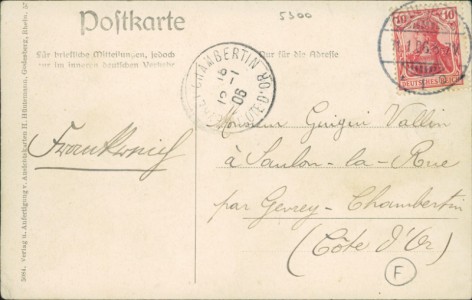 Postkarte
5300
für briefliche Mitteilungen, jedoch
nur im inneren deutschen Verkehr
Nur für die Adresse
10 10
DEUTSCHES REICH
CHAMBERTIN
CÔTE D'OR
16
12 -1
06
Monsieur Guigui Vallon
Frankreich
à Saulon-la-Rue
par Gevrey-Chambertin
(Côte d'Or)
F
5084. Verlag u. Anfertigung v. Ansichtskarten H. Hünnemann, Godesberg, Rhein.